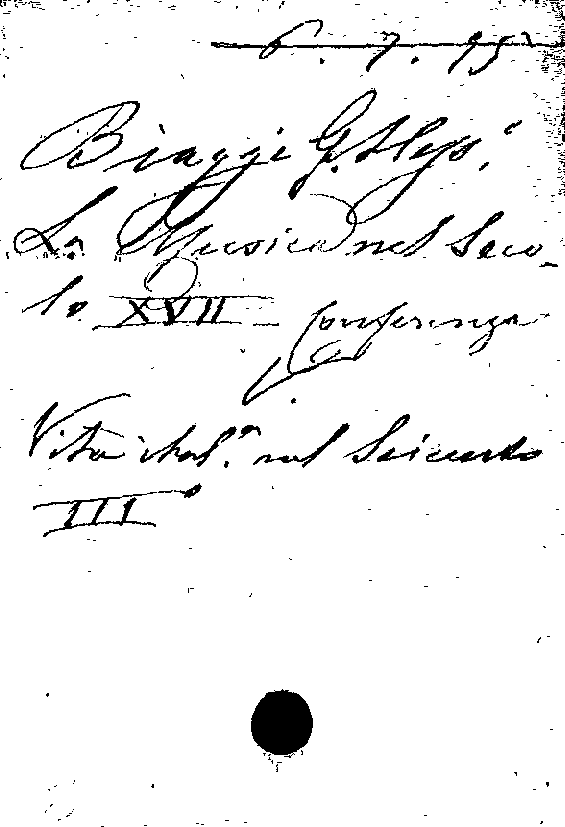 6. 7. 95
Biaggi G. Aless.
La Musica nel Seco-
lo XVII Conferenza
Vita ital.na nel Seicento
III